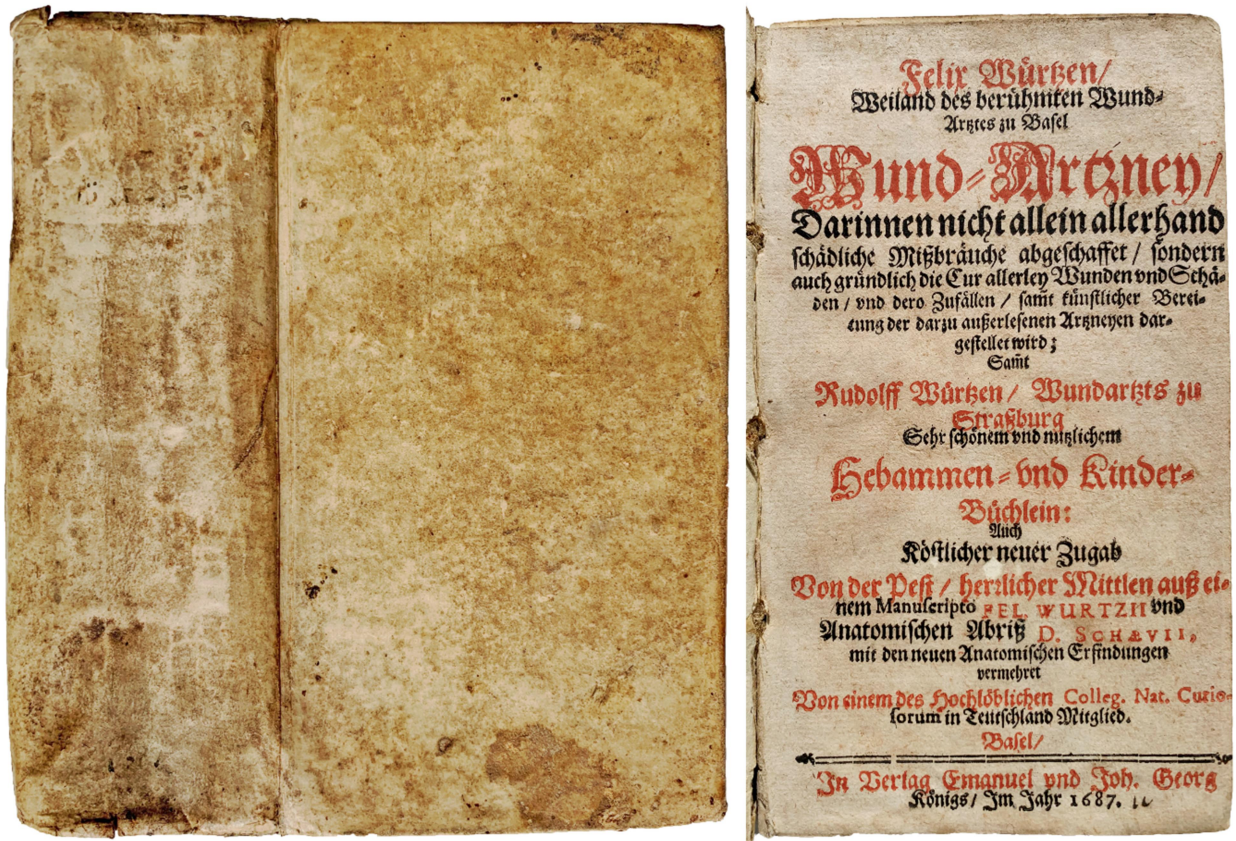 Felix Würtzen/
Weiland des berühmten Wund-
Artztes zu Basel
Wund-Artzney/
Darinnen nicht allein allerhand
schädliche Mißbräuche abgeschaffet / sondern
auch gründlich die Cur allerley Wunden vnd Schä-
den / vnd dero Zufällen / sam̃t künstlicher Berei-
tung der darzu außerlesenen Artzneyen dar-
gestellet wird;
Sam̃t
Rudolff Würtzen / Wundartzts zu
Straßburg
Sehr schönem vnd nutzlichem
Hebammen- vnd Kinder-
Büchlein:
Auch
Köstlicher neuer Zugab
Von der Pest / herrlicher Mittlen auß ei-
nem Manuscripto FEL. WURTZII vnd
Anatomischen Abriß D. SCHÆVII,
mit den neuen Anatomischen Erfindungen
vermehret
Von einem des Hochlöblichen Colleg. Nat. Curio-
sorum in Teutschland Mitglied.
Basel/
In Verlag Emanuel vnd Joh. Georg
Königs / Im Jahr 1687.